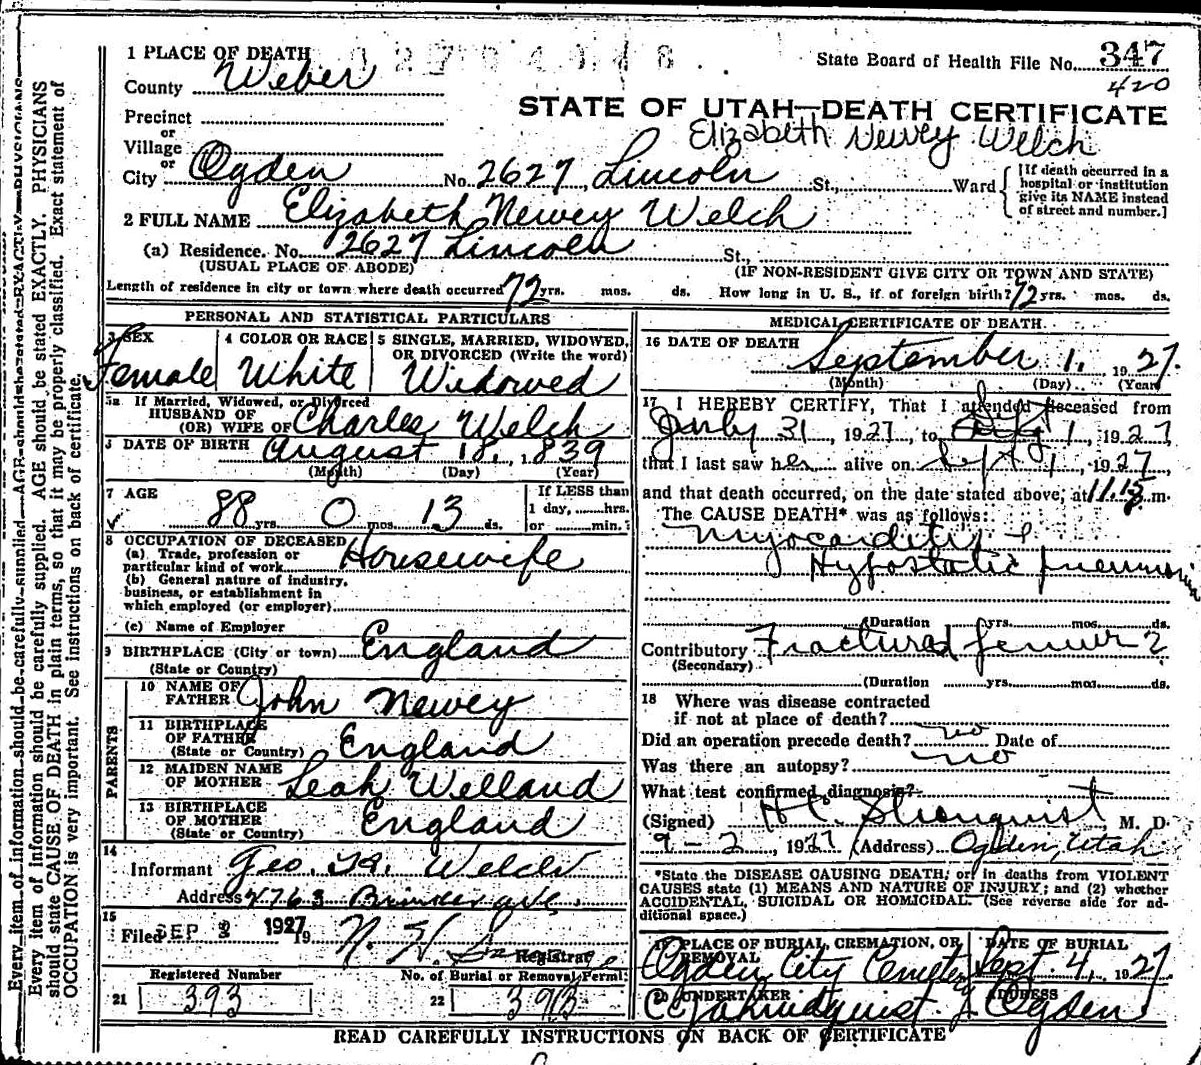 1 PLACE OF DEATH
State Board of Health File No. 347
420
County Weber
STATE OF UTAH—DEATH CERTIFICATE
Precinct
or
Elizabeth Newey Welch
Village
or
City Ogden No. 2627 Lincoln St., Ward
[If death occurred in a hospital or institution give its NAME instead of street and number.]
2 FULL NAME Elizabeth Newey Welch
(a) Residence. No. 2627 Lincoln St.,
(USUAL PLACE OF ABODE) (IF NON-RESIDENT GIVE CITY OR TOWN AND STATE)
Length of residence in city or town where death occurred 72 yrs. mos. ds. How long in U. S., if of foreign birth? 72 yrs. mos. ds.
PERSONAL AND STATISTICAL PARTICULARS
3 SEX
Female
4 COLOR OR RACE
White
5 SINGLE, MARRIED, WIDOWED,
OR DIVORCED (Write the word)
Widowed
5a If Married, Widowed, or Divorced
HUSBAND OF
(OR) WIFE OF Charles Welch
DATE OF BIRTH August 18, 1839
(Month) (Day) (Year)
7 AGE
88 yrs. 0 mos. 13 ds.
If LESS than
1 day, hrs.
or min.
8 OCCUPATION OF DECEASED
(a) Trade, profession or
particular kind of work Housewife
(b) General nature of industry,
business, or establishment in
which employed (or employer)
(c) Name of Employer
9 BIRTHPLACE (City or town) England
(State or Country)
PARENTS
10 NAME OF
FATHER John Newey
11 BIRTHPLACE
OF FATHER
(State or Country) England
12 MAIDEN NAME
OF MOTHER Leah Welland
13 BIRTHPLACE
OF MOTHER
(State or Country) England
14
Informant Geo. Welch
Address 2763
15
Filed SEP 1927 19 N. H.
Registrar
Registered Number
21 393
No. of Burial or Removal Permit
22 393
MEDICAL CERTIFICATE OF DEATH
16 DATE OF DEATH
September 1, 1927.
(Month) (Day) (Year)
17 I HEREBY CERTIFY, That I attended deceased from
July 31, 1927, to Sept 1, 1927
that I last saw her alive on Sept 1, 1927,
and that death occurred, on the date stated above, at 11.15 m.
The CAUSE DEATH* was as follows:
Myocarditis &
Hypostatic pneumonia
(Duration yrs. mos. ds.
Contributory Fractured femur ?
(Secondary)
(Duration yrs. mos. ds.
18 Where was disease contracted
if not at place of death?
Did an operation precede death? no Date of
Was there an autopsy? no
What test confirmed diagnosis?
(Signed) Stranquist, M. D.
9-2, 1927 (Address) Ogden, Utah
*State the DISEASE CAUSING DEATH, or in deaths from VIOLENT
CAUSES state (1) MEANS AND NATURE OF INJURY; and (2) whether
ACCIDENTAL, SUICIDAL OR HOMICIDAL. (See reverse side for ad-
ditional space.)
19 PLACE OF BURIAL, CREMATION, OR
REMOVAL
Ogden City Cemetery
DATE OF BURIAL
Sept. 4, 1927.
20 UNDERTAKER
Lindquist
ADDRESS
Ogden
READ CAREFULLY INSTRUCTIONS ON BACK OF CERTIFICATE
Every item of information should be carefully supplied. AGE should be stated EXACTLY. PHYSICIANS
should state CAUSE OF DEATH in plain terms, so that it may be properly classified. Exact statement of
OCCUPATION is very important. See instructions on back of certificate.